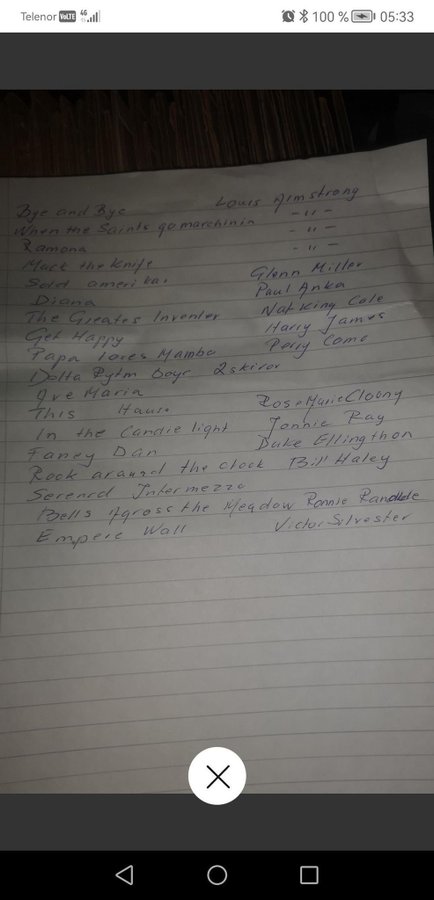 Telenor VoLTE 4G 100 % 05:33
Bye and Bye Louis Armstrong
When the Saints go marchinin - " -
Ramona - " -
Mack the Knife - " -
Sold ameri Glenn Miller
Diana Paul Anka
The Greates Invenler Nat King Cole
Get Happy Harry James
Papa loves Mambo Perry Como
Delta Rytm Boyc 2skivor
Ave Maria
This Hause Rose Marie Cloony
In the Candle light Jonnie Ray
Fancy Dan Duke Ellingthon
Rock araund the clock Bill Haley
Serenrd Intermezzo
Bells Agross the Meadow Ronnie Ranalde
Empere Wall Victor Silvester